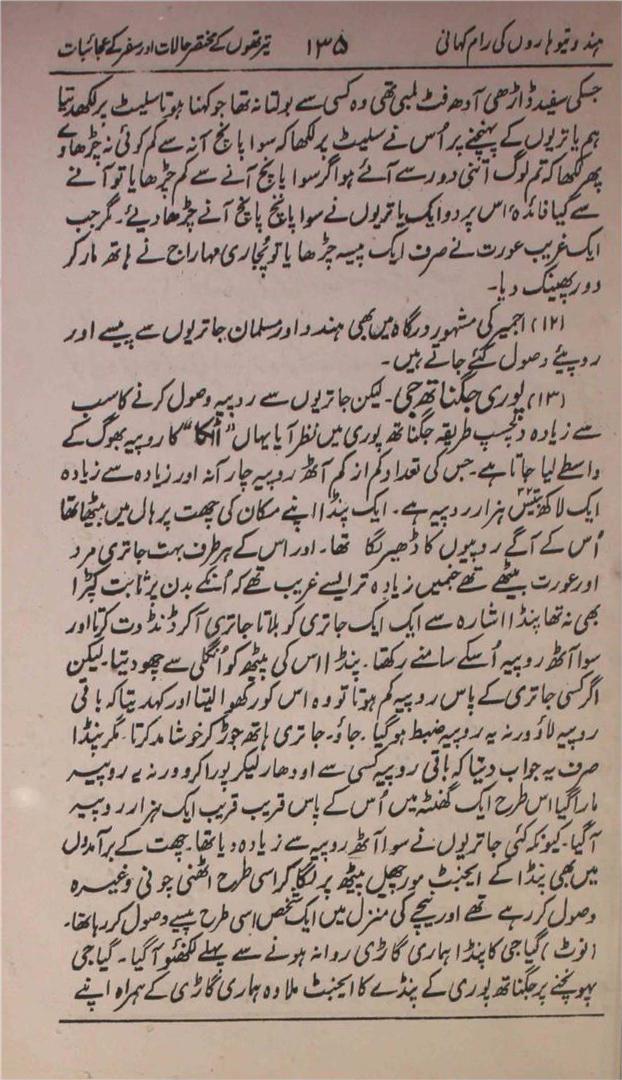 ہندو تیوہاروں کی رام کہانی ۱۳۵ تیرتھوں کے مختصر حالات اور سفر کے عجائبات
جسکی سفید ڈاڑھی آدھ فٹ لمبی تھی وہ کسی سے بولتا نہ تھا جو کہنا ہوتا سلیٹ پر لکھدیتا
ہم یاتریوں کے پہنچنے پر اُس نے سلیٹ پر لکھا کہ سوا پانچ آنہ سے کم کوئی نہ چڑھاوے
پھر لکھا کہ تم لوگ اتنی دور سے آئے ہو اگر سوا پانچ آنے سے کم چڑھایا تو آنے
سے کیا فائدہ اس پر دو ایک یاتریوں نے سوا پانچ پانچ آنے چڑھا دیئے۔ مگر جب
ایک غریب عورت نے صرف ایک پیسہ چڑھایا تو پُجاری مہاراج نے ہاتھ مار کر
دور پھینک دیا۔
(۱۲) اجمیر کی مشہور درگاہ میں بھی ہندو اور مسلمان جاتریوں سے پیسے اور
روپئے وصول کئے جاتے ہیں۔
(۱۳) پوری جگناتھ جی۔ لیکن جاتریوں سے روپیہ وصول کرنے کا سب
سے زیادہ دلچسپ طریقہ جگناتھ پوری میں نظر آیا یہاں "اٹکا" کا روپیہ بھوگ کے
واسطے لیا جاتا ہے۔ جس کی تعداد کم از کم آٹھ روپیہ چار آنہ اور زیادہ سے زیادہ
ایک لاکھ بتیس ۳۲ ہزار روپیہ ہے۔ ایک پنڈا اپنے مکان کی چھت پر ہال میں بیٹھا تھا
اُس کے آگے روپیوں کا ڈھیر لگا تھا۔ اور اس کے ہر طرف بہت جاتری مرد
اور عورت بیٹھے تھے جنمیں زیادہ تر ایسے غریب تھے کہ اُنکے بدن پر ثابت کپڑا
بھی نہ تھا پنڈا اشارہ سے ایک ایک جاتری کو بلاتا جاتری آکر ڈنڈوت کرتا اور
سوا آٹھ روپیہ اُسکے سامنے رکھتا۔ پنڈا اس کی پیٹھ کو اُنگلی سے چھو دیتا۔ لیکن
اگر کسی جاتری کے پاس روپیہ کم ہوتا تو وہ اس کو رکھوا لیتا اور کہدیتا کہ باقی
روپیہ لاؤ ورنہ یہ روپیہ ضبط ہوگیا۔ جاؤ۔ جاتری ہاتھ جوڑ کر خوشامد کرتا۔ مگر پنڈا
صرف یہ جواب دیتا کہ باقی روپیہ کسی سے اودھار لیکر پورا کرو ورنہ یہ روپیہ
مارا گیا اس طرح ایک گھنٹہ میں اُس کے پاس قریب قریب ایک ہزار روپیہ
آگیا۔ کیونکہ کئی جاتریوں نے سوا آٹھ روپیہ سے زیادہ دیا تھا۔ چھت کے برآمدوں
میں بھی پنڈا کے ایجنٹ مورچھل پیٹھ پر لگا کر اسی طرح اٹھنی چونی وغیرہ
وصول کر رہے تھے اور نیچے کی منزل میں ایک شخص اسی طرح پیسے وصول کر رہا تھا۔
(نوٹ) گیا جی کا پنڈا ہماری گاڑی روانہ ہونے سے پہلے لکھنؤ آگیا۔ گیا جی
پہونچنے پر جگناتھ پوری کے پنڈے کا ایجنٹ ملا وہ ہماری گاڑی کے ہمراہ اپنے